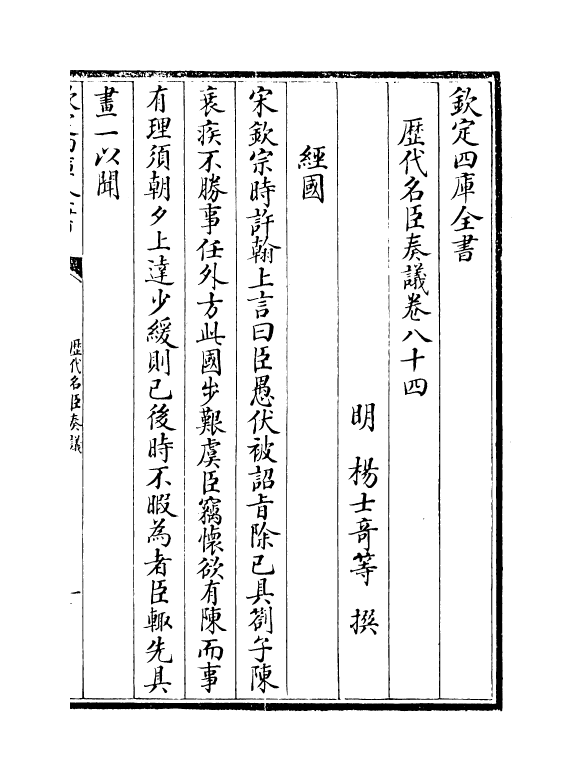 欽定四庫全書
歴代名臣奏議卷八十四
明 楊士奇等 撰
經國
宋欽宗時許翰上言曰臣愚伏被詔㫖除已具劄子陳
衰疾不勝事任外方此國步艱虞臣竊懐欲有陳而事
有理須朝夕上達少緩則已後時不暇為者臣輙先具
畫一以聞
歴代名臣奏議
一